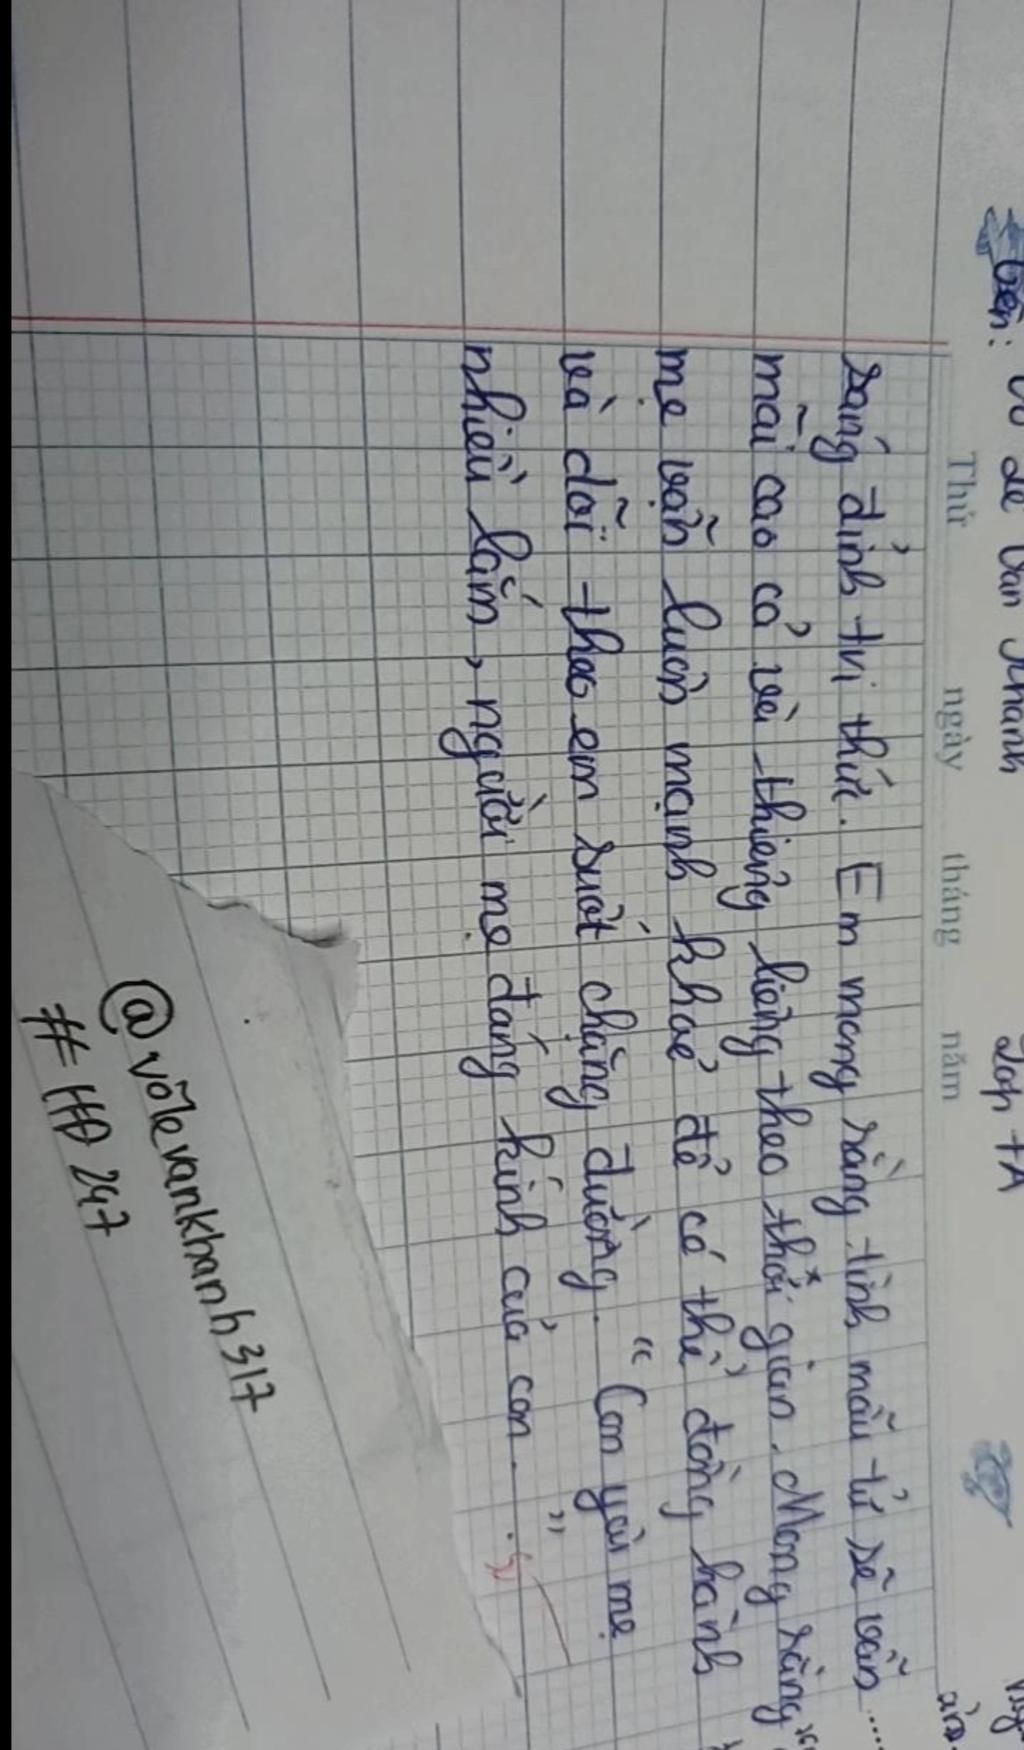 tên: Võ Lê Văn Khánh Lớp 7A
Thứ ngày tháng năm
sáng đỉnh tri thức. Em mong rằng tình mẫu tử sẽ vẫn .....
mãi cao cả và thiêng liêng theo thời gian. Mong rằng
mẹ vẫn luôn mạnh khoẻ để có thể đồng hành
và dõi theo em suốt chặng đường. “ Con yêu mẹ
nhiều lắm, người mẹ đáng kính của con. ”
@võlevankhanh317
#HĐ 247